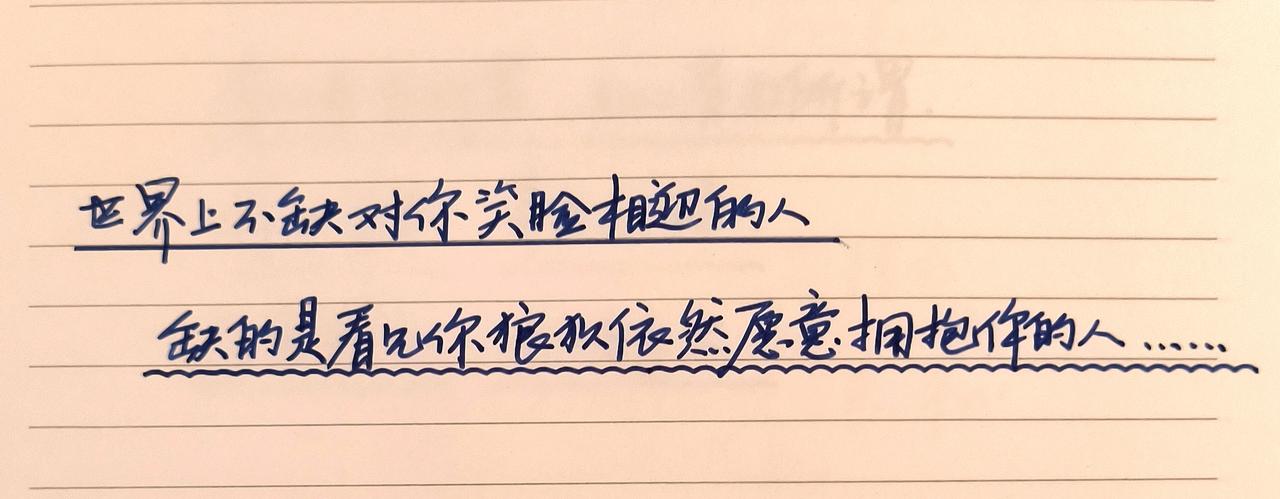 世界上不缺对你笑脸相迎的人
缺的是看见你狼狈依然愿意拥抱你的人……